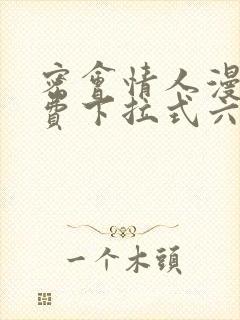 密會情人漫
費下拉式六
一个木頭